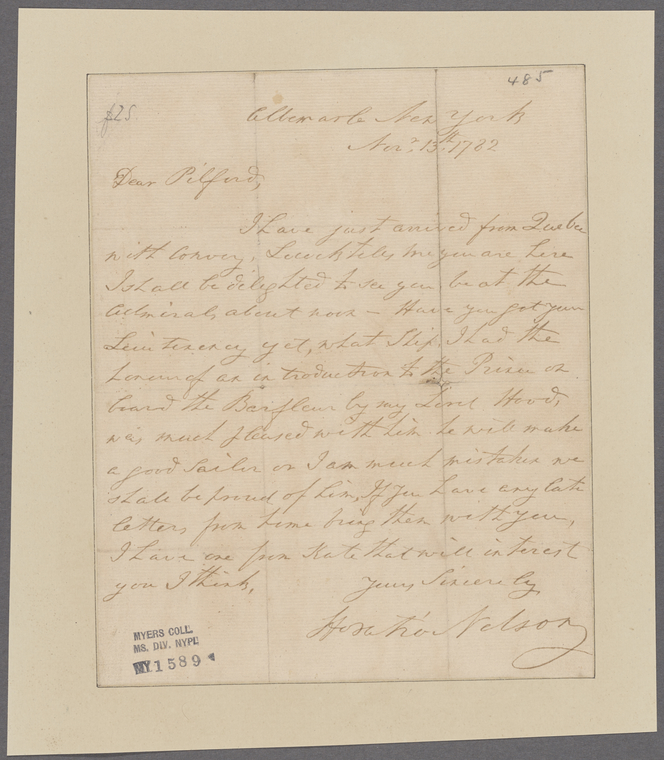 485
£25.
Albemarle New York
Novr. 13th. 1782
Dear Pilford,
I have just arrived from Quebec
with Convoy. tells me you are here
I shall be delighted to see you, be at the
Admirals about noon – Have you got your
Leiutenency yet, what Ship. I had the
honour of an introduction to the Prince on
board the Barfleur by my Lord Hood,
was much pleased with him he will make
a good Sailor or I am much mistaken we
shall be proud of him. If you have any late
letters from home bring them with you,
I have one from Kate that will interest
you I think.
Yours Sincerely
Horatio Nelson
MYERS COLL.
MS. DIV. NYPL
NY 1589